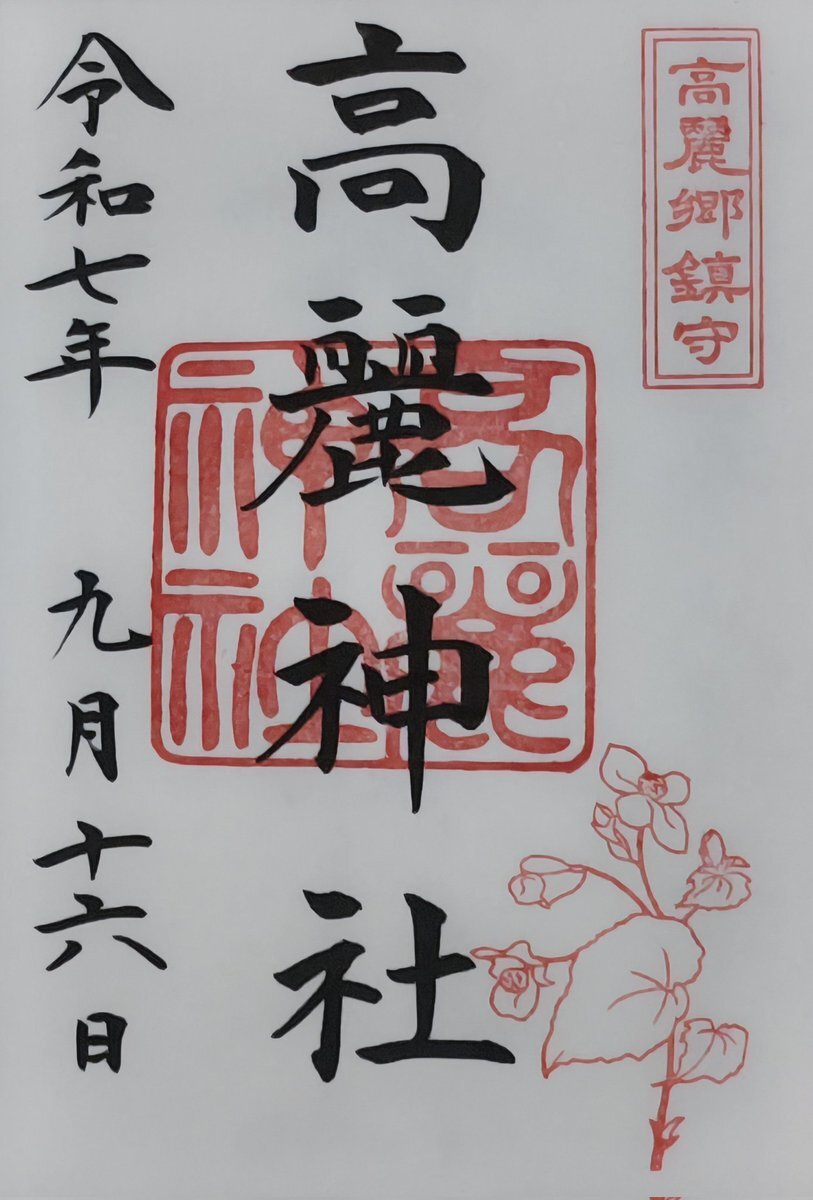 高麗郷鎮守
高麗神社
高麗神社
令和七年 九月十六日